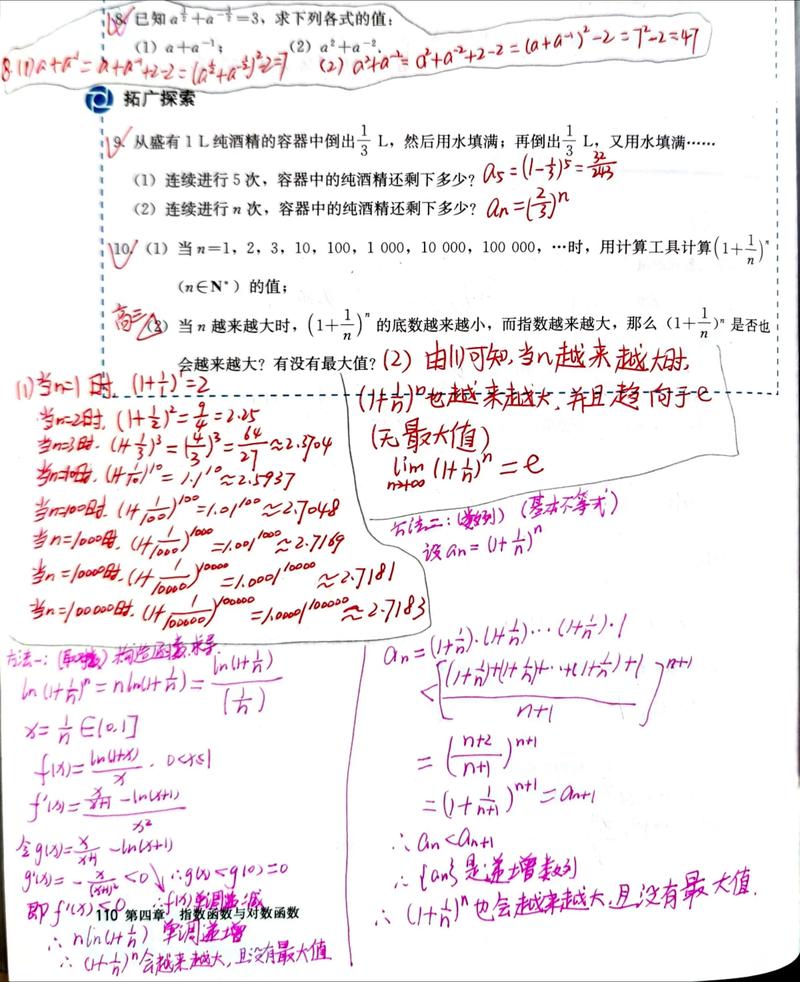 8. 已知a^{\frac{1}{2}}+a^{-\frac{1}{2}}=3，求下列各式的值：
(1) a+a^{-1}； (2) a^2+a^{-2}.
8.(1) a+a^{-1}=a+a^{-1}+2-2=(a^{\frac{1}{2}}+a^{-\frac{1}{2}})^2-2=7 (2) a^2+a^{-2}=a^2+a^{-2}+2-2=(a+a^{-1})^2-2=7^2-2=47
拓广探索
9. 从盛有1 L纯酒精的容器中倒出\frac{1}{3} L，然后用水填满；再倒出\frac{1}{3} L，又用水填满……
(1) 连续进行5次，容器中的纯酒精还剩下多少？ a_5=(1-\frac{1}{3})^5=\frac{32}{243}
(2) 连续进行n次，容器中的纯酒精还剩下多少？ a_n=(\frac{2}{3})^n
10. (1) 当n=1，2，3，10，100，1 000，10 000，100 000，…时，用计算工具计算(1+\frac{1}{n})^n
(n∈N^*) 的值；
高三
(2) 当n越来越大时，(1+\frac{1}{n})^n的底数越来越小，而指数越来越大，那么(1+\frac{1}{n})^n是否也
会越来越大？有没有最大值？
(1) 当n=1时，(1+\frac{1}{1})^1=2
当n=2时，(1+\frac{1}{2})^2=\frac{9}{4}=2.25
当n=3时，(1+\frac{1}{3})^3=(\frac{4}{3})^3=\frac{64}{27}≈2.3704
当n=10时，(1+\frac{1}{10})^{10}=1.1^{10}≈2.5937
当n=100时，(1+\frac{1}{100})^{100}=1.01^{100}≈2.7048
当n=1000时，(1+\frac{1}{1000})^{1000}=1.001^{1000}≈2.7169
当n=10000时，(1+\frac{1}{10000})^{10000}=1.0001^{10000}≈2.7181
当n=100000时，(1+\frac{1}{100000})^{100000}=1.00001^{100000}≈2.7183
(2) 由(1)可知，当n越来越大时，
(1+\frac{1}{n})^n也越来越大，并且趋向于e
(无最大值)
\lim_{n→+∞}(1+\frac{1}{n})^n=e
方法一：(取对数) 构造函数求导
ln(1+\frac{1}{n})^n=nln(1+\frac{1}{n})=\frac{ln(1+\frac{1}{n})}{(\frac{1}{n})}
x=\frac{1}{n}∈(0,1]
f(x)=\frac{ln(1+x)}{x}，0<x≤1
f'(x)=\frac{\frac{x}{x+1}-ln(x+1)}{x^2}
令g(x)=\frac{x}{x+1}-ln(x+1)
g'(x)=-\frac{x}{(x+1)^2}<0 ∴g(x)<g(0)=0
即f'(x)<0 ∴f(x)单调递减
110 第四章 指数函数与对数函数
∴nln(1+\frac{1}{n})单调递增
∴(1+\frac{1}{n})^n会越来越大，且没有最大值
方法二：(数列) (基本不等式)
设a_n=(1+\frac{1}{n})^n
a_n=(1+\frac{1}{n})·(1+\frac{1}{n})…(1+\frac{1}{n})·1
<[\frac{(1+\frac{1}{n})+(1+\frac{1}{n})+…+(1+\frac{1}{n})+1}{n+1}]^{n+1}
=(\frac{n+2}{n+1})^{n+1}
=(1+\frac{1}{n+1})^{n+1}=a_{n+1}
∴a_n<a_{n+1}
∴{a_n}是递增数列
∴(1+\frac{1}{n})^n也会越来越大，且没有最大值.